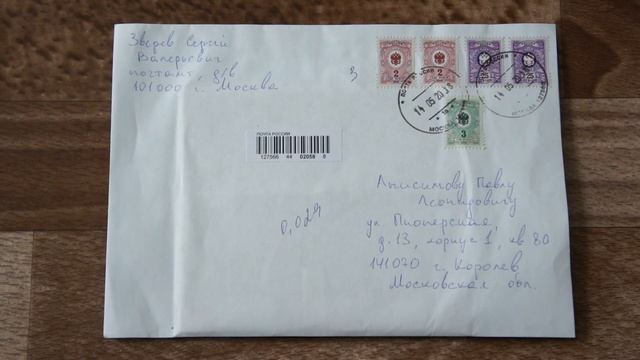 Зверев Сергей
Валерьевич
почтамт, д/в
101000 г. Москва
3
2
2
3
14 05 20
14 05 20
МОСКВА
ПОЧТА РОССИИ
127566 44 02058 0
0,024
Анисимову Павлу
Леонидовичу
ул. Пионерская,
д.13, корпус 1, кв 80
141070 г. Королев
Московская обл.